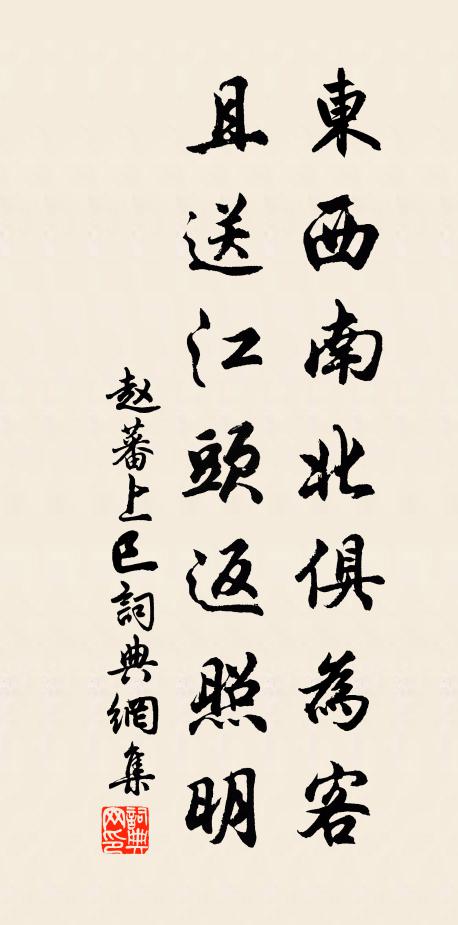 東西南北俱為客
且送江頭返照明
赵蕃上巳詞典網集
詞典网印